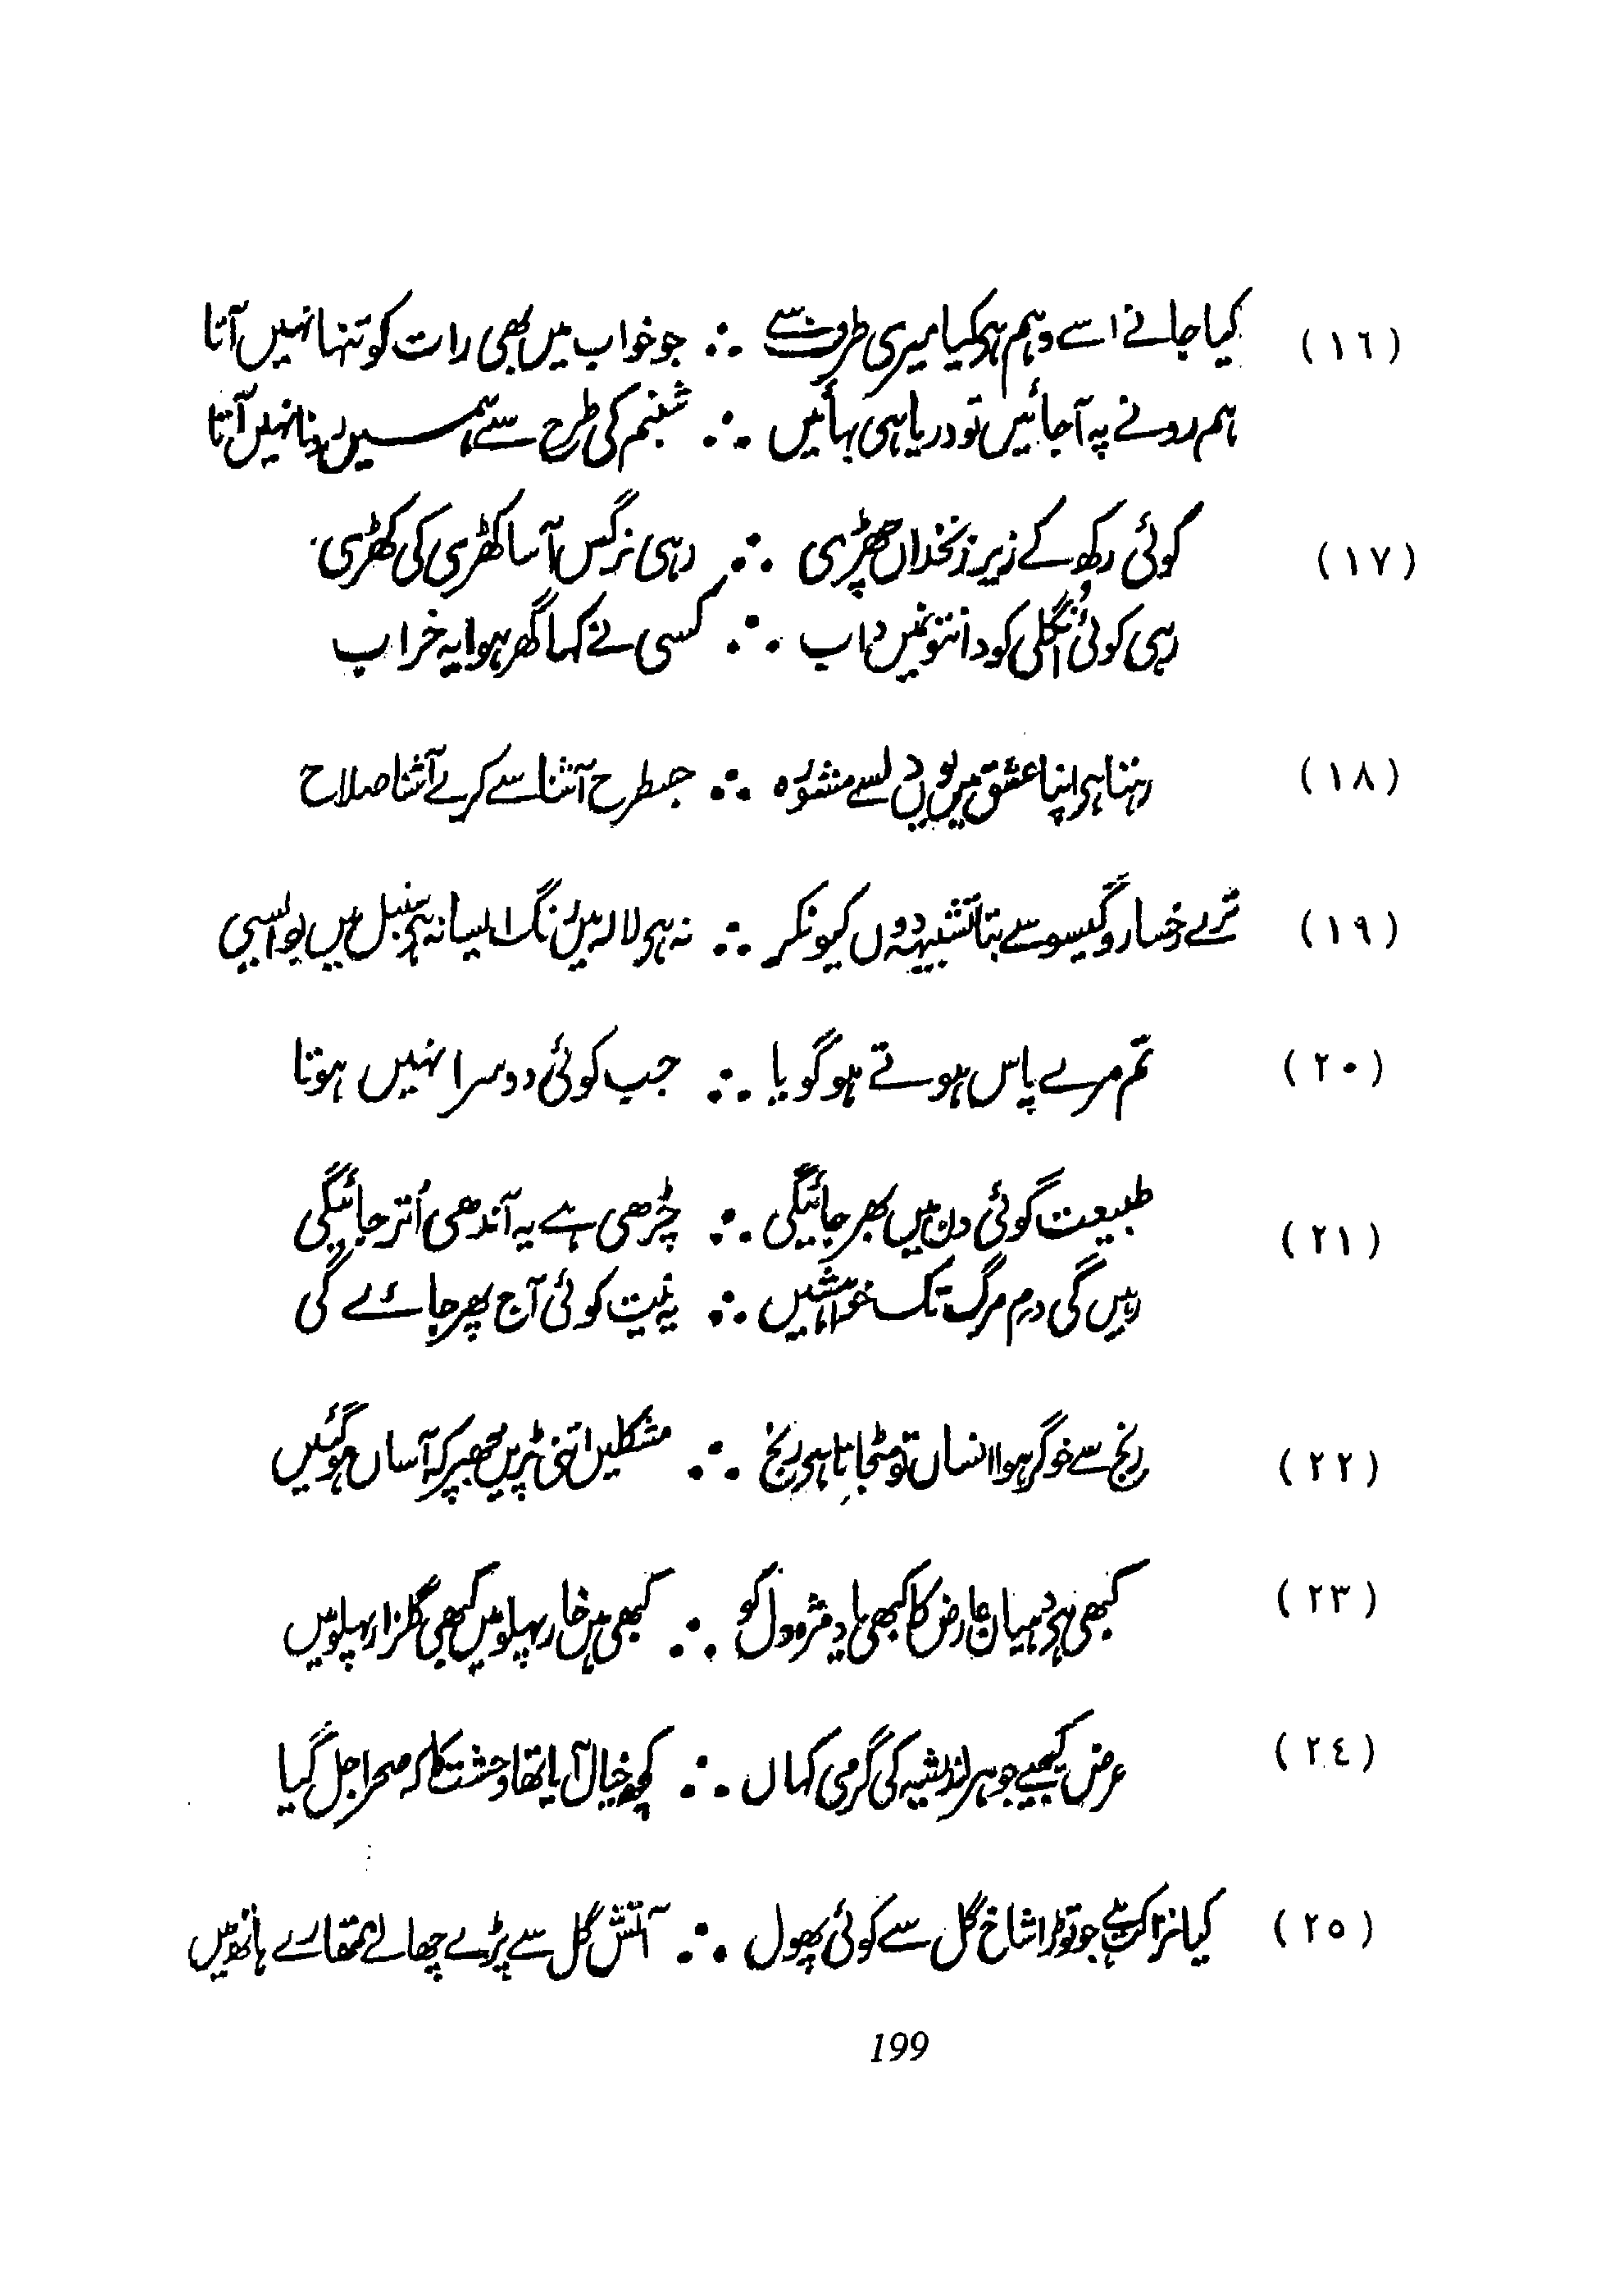 (١٦) کیا جانے اسے وہم ہو کیا میری طرف سے ∴ جو خواب میں بھی رات کو تنہا نہیں آتا
ہم رونے پہ آجائیں تو دریا ہی بہائیں ∴ شبنم کی طرح سے ہمیں رونا نہیں آتا
(١٧) کوئی رکھ کے زیر زنخداں چھڑی ∴ رہی نرگس آسا کھڑی کی کھڑی
رہی کوئی اُنگلی کو دانتونمیں داب ∴ کسی نے کہا گھر ہوا یہ خراب
(١٨) رہتا ہر اپنا عشق میں یوں دل سے مشورہ ∴ جسطرح آشنا سے کرے آشنا صلاح
(١٩) ترے رخسار و گیسو سے بتا تشبیہہ دوں کیونکر ∴ نہ ہر لالہ میں رنگ ایسا نہ ہر سنبل میں بو ایسی
(٢٠) تم مرے پاس ہوتے ہو گویا ∴ جب کوئی دوسرا نہیں ہوتا
(٢١) طبیعت کوئی دن میں بھر جائیگی ∴ چڑھی ہے یہ آندھی اُتر جائیگی
رہیں گی دم مرگ تک خواہشیں ∴ یہ نیت کوئی آج بھر جائے گی
(٢٢) رنج سے خوگر ہوا انساں تو مٹجاتا ہی رنج ∴ مشکلیں اتنی پڑیں مجھپر کہ آساں ہوگئیں
(٢٣) کبھی ہی دہیان عارض کا کبھی یاد مژہ دل کو ∴ کبھی ہیں خار پہلو میں کبھی گلزار پہلو میں
(٢٤) عرض کیجیے جوہر اندیشہ کی گرمی کہاں ∴ کچھ خیال آیا تھا وحشت کا کہ صحرا جل گیا
(٢٥) کیا نزاکت ہے جو توڑا شاخ گل سے کوئی پھول ∴ آتش گل سے پڑے چھالے تمھارے ہاتھ میں
199